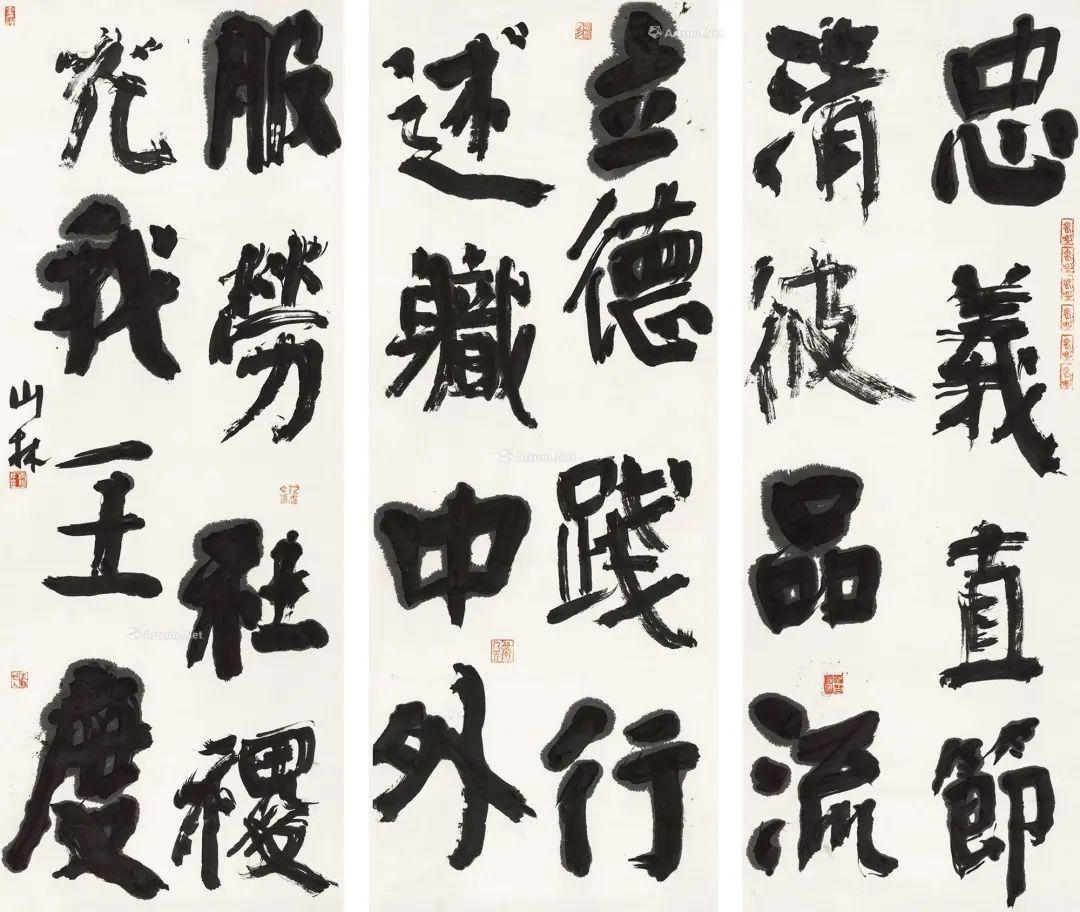 忠義直節
清彼品流
立德踐行
述職中外
服勞社禝
光我王度
山林
Artron.Net
Artron.Net
Artron.Net